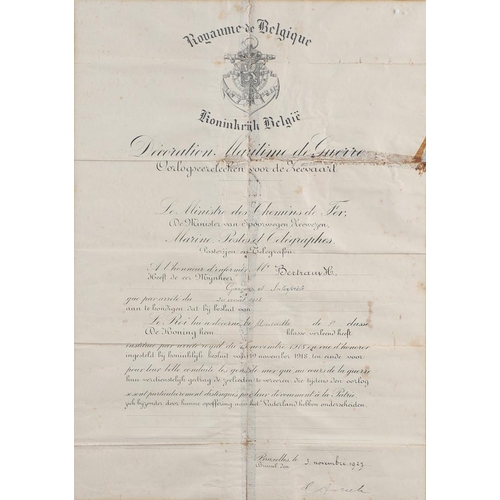 Royaume de Belgique
Koninkrijk België
Décoration Maritime de Guerre
Oorlogseereteeken voor de Zeevaart
Le Ministre des Chemins de Fer,
De Minister van Spoorwegen, Zeewezen,
Marine, Postes et Télégraphes,
Posterijen en Telegrafen,
A l'honneur d'informer Mr Bertrau H.
Heeft de eer Mynheer
Garçon
que par arrêté du
aan te kondigen dat bij besluit van
Le Roi lui a décerné la classe
De Koning hem klasse verleend heeft
instituée par arrêté royal du novembre 1918 en vue d'honorer
ingesteld bij koninklijk besluit van november 1918 ten einde voor
pour leur belle conduite les gens de mer qui au cours de la guerre
hun verdienstelijk gedrag de zeelieden te vereeren die tijdens den oorlog
se sont particulièrement distingués par leur dévouement à la Patrie
zich bijzonder door hunne opoffering aan het Vaderland hebben onderscheiden.
Bruxelles, le novembre 1923
Brussel, den